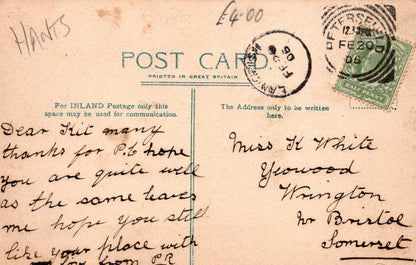 HANTS
£4.00
PETERSFIELD
FE 20
06
LANGRISH
FE 20
06
POST CARD.
PRINTED IN GREAT BRITAIN
For INLAND Postage only this
space may be used for communication.
The Address only to be written
here.
Dear Kit many
thanks for P.C hope
you are quite well
as the same leaves
me hope you still
like your place with
love from P R
Miss K White
Yeowood
Wrington
Nr Bristol
Somerset